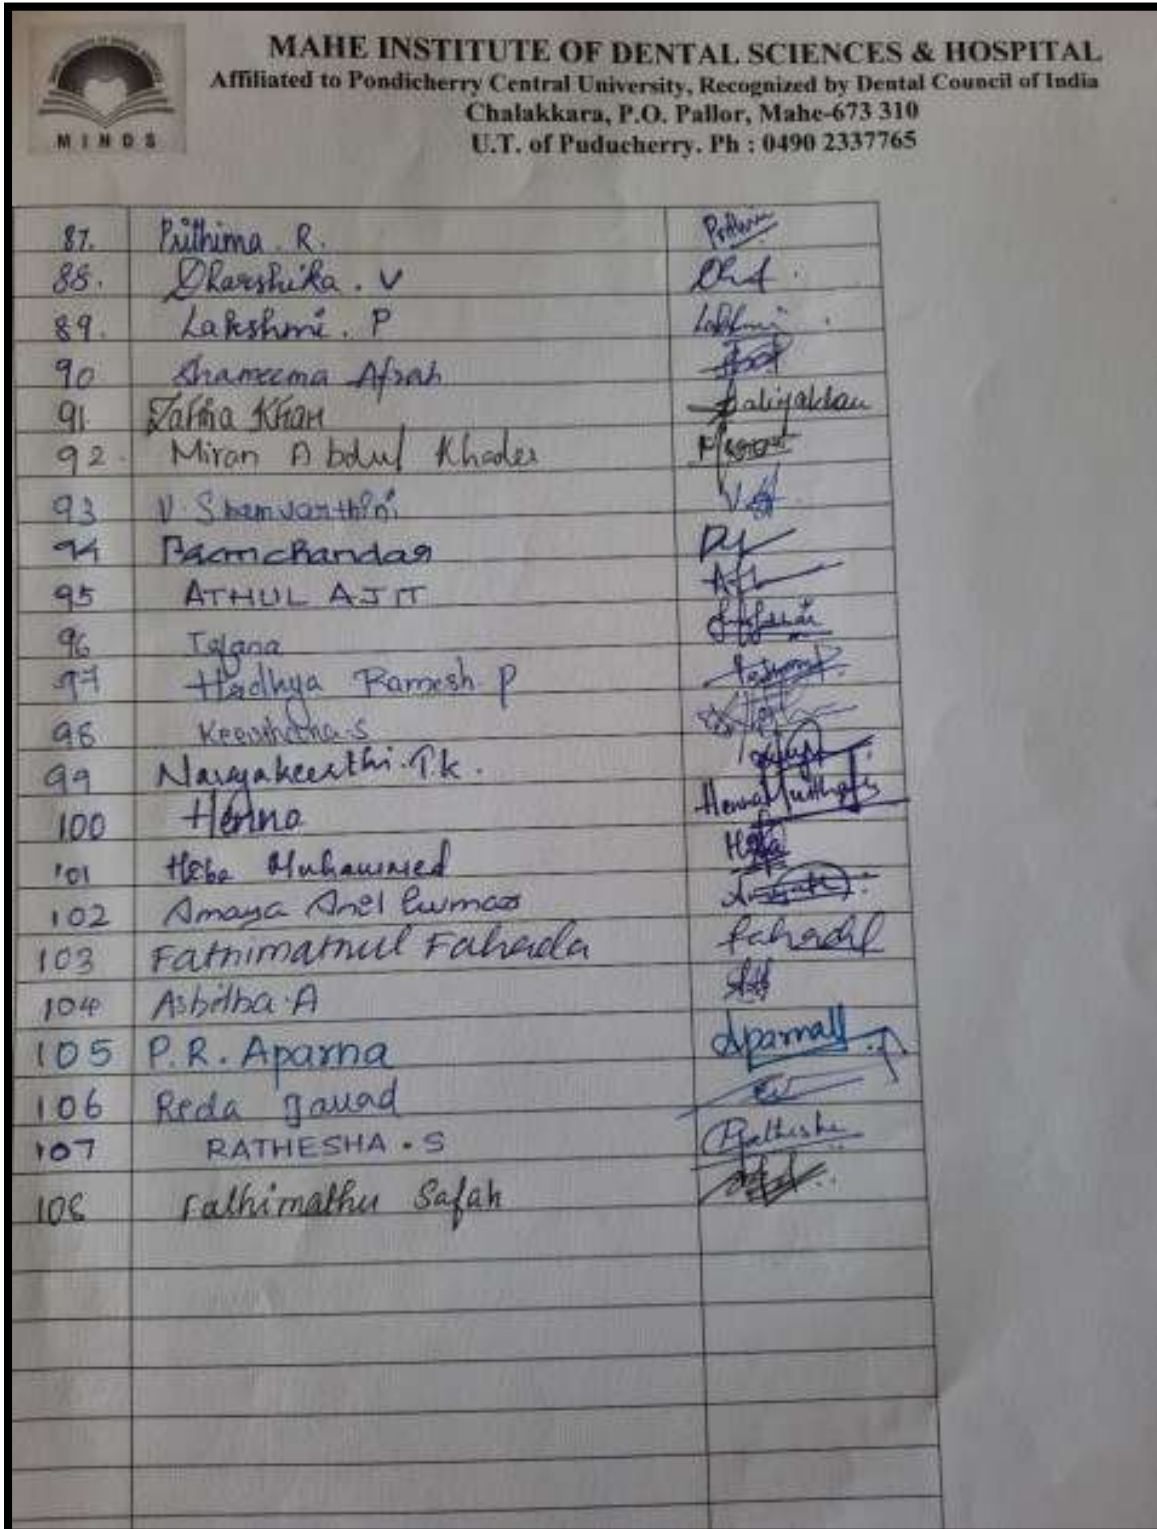 MINDS
MAHE INSTITUTE OF DENTAL SCIENCES & HOSPITAL
Affiliated to Pondicherry Central University, Recognized by Dental Council of India
Chalakkara, P.O. Pallor, Mahe-673 310
U.T. of Puducherry. Ph : 0490 2337765
87. Prithima R.
88. Dharshika . V
89. Lakshmi . P Lakshmi
90 Shameema Afrah
91. Zahia Khan
92. Miran Abdul Khader
93 V. Shamvarthini
94 Ramchandar
95 ATHUL AJIT
96
97 Hadhya Ramesh P
98 Keerthana.S
99 Navyakeerthi.T.k.
100 Henna
101 Heba Muhammed Heba
102 Amaya Anil Kumar
103 Fathimathul Fahada
104 Ashitha.A
105 P.R. Aparna
106 Reda Jauad
107 RATHESHA . S Rathesha
108 Fathimathu Safah